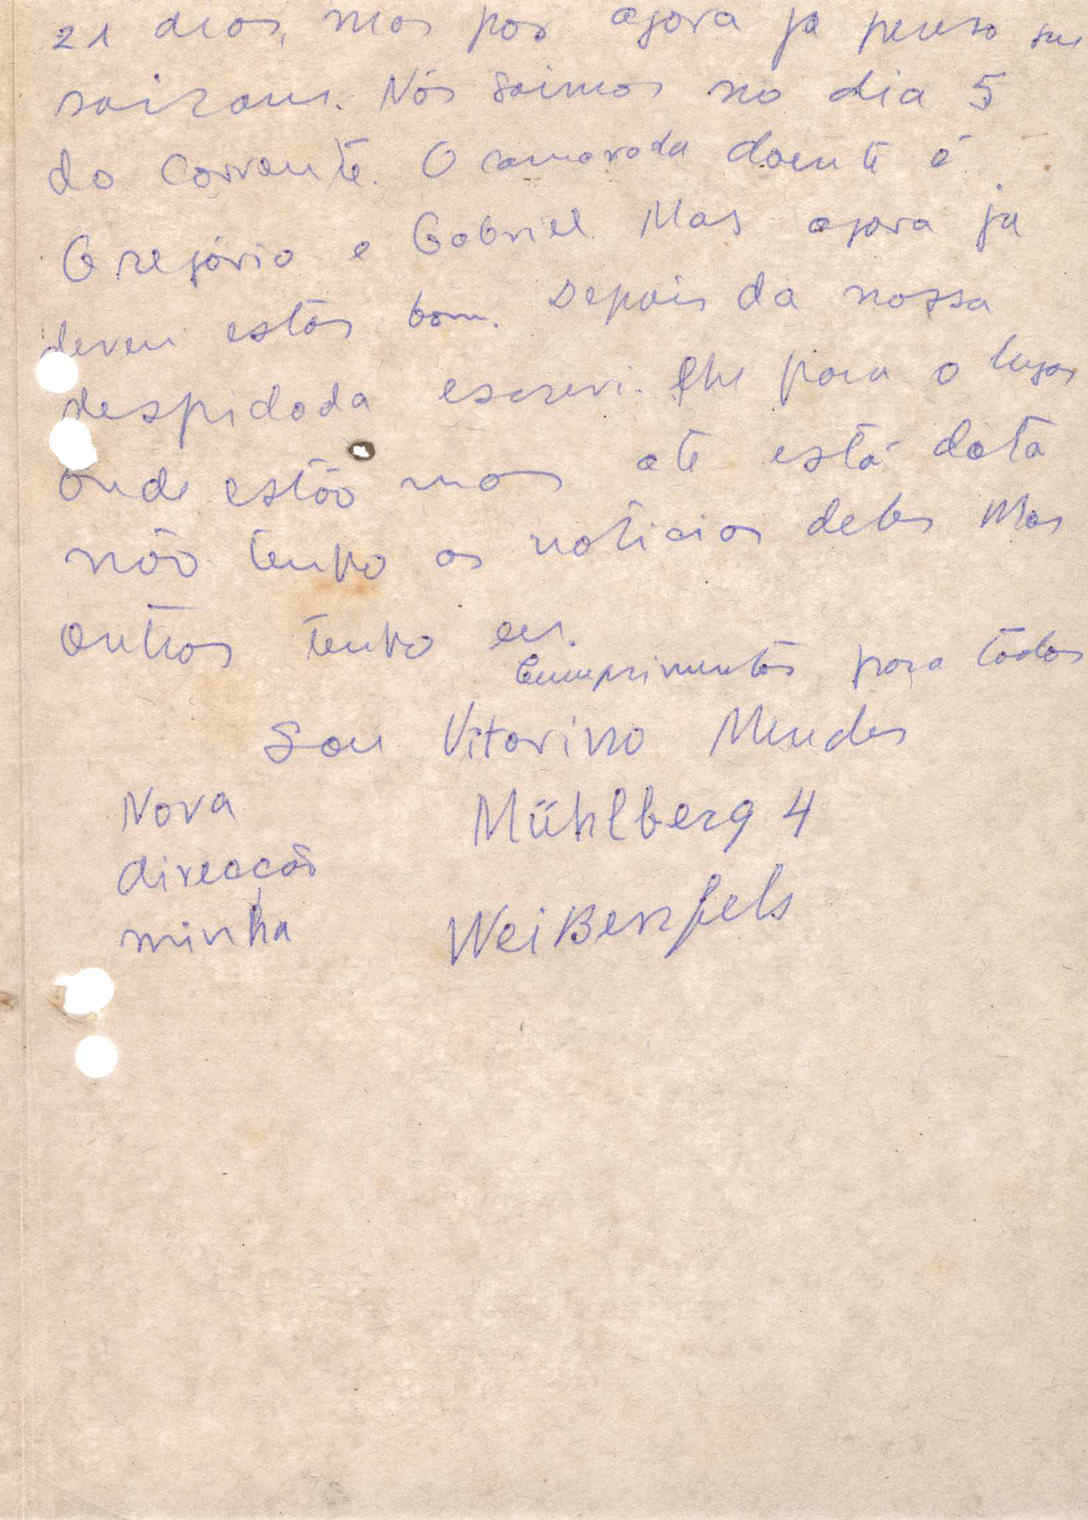 21 dias, mas por agora ja penso que
sairam. Nós saimos no dia 5
do corrente. O camarada doente é
Gregório e Gabriel. Mas agora ja
devem estar bom. Depois da nossa
despidada escrevi-lhe para o lugar
onde estão mas até está data
não tenho as noticias deles Mas
outros tenho
Cumprimentos para todos
Sou Vitorino Mendes
Nova Mühlberg 4
direcção
minha Weißenfels